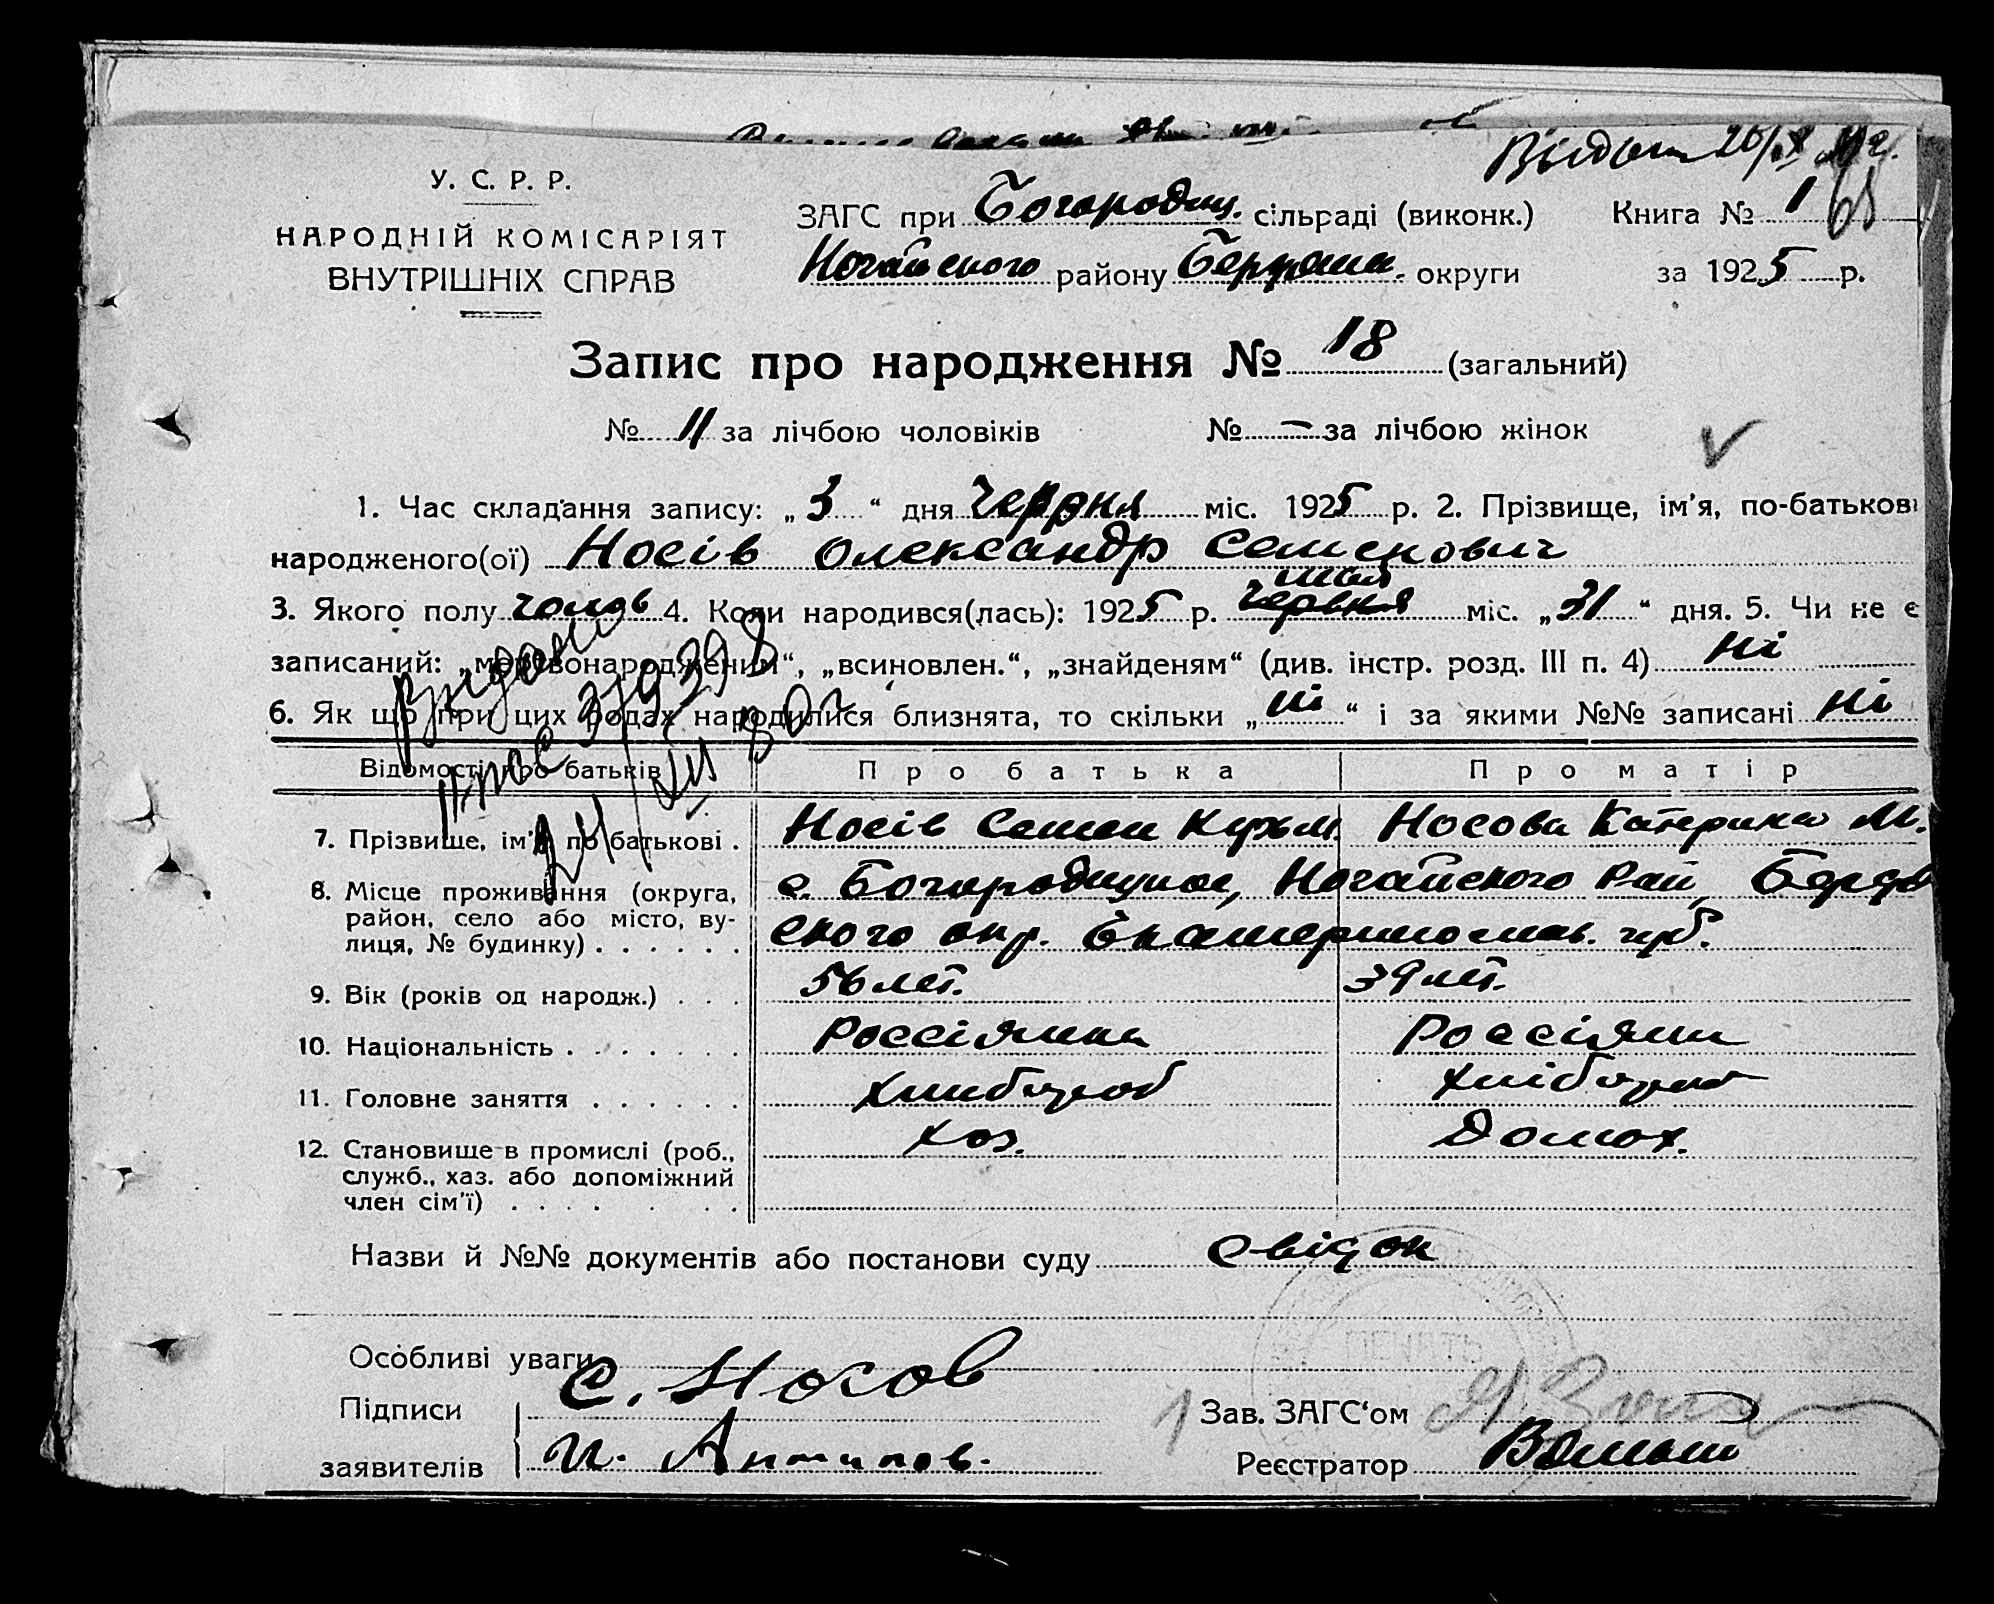 У. С. Р. Р.
НАРОДНІЙ КОМІСАРІЯТ
ВНУТРІШНІХ СПРАВ
ЗАГС при Богородиц. сільраді (виконк.) Книга № 1
Ногайського району Бердянск. округи за 1925 р.
Запис про народження № 18 (загальний)
№ 11 за лічбою чоловіків № — за лічбою жінок
1. Час складання запису: „ 3 “ дня Червня міс. 1925 р. 2. Прізвище, ім'я, по-батькові
народженого(ої) Носів Олександр Семенович
мая
3. Якого полу чолов 4. Коли народився(лась): 1925 р. червня міс. „ 31 “ дня. 5. Чи не є
записаний: „мертвонародженим“, „всиновлен.“, „знайденям“ (див. інстр. розд. III п. 4) Ні
6. Як що при цих родах народилися близнята, то скільки „ ні “ і за якими №№ записані Ні
Відомості про батьків Про батька Про матір
7. Прізвище, ім'я по батькові . Носів Семен Кузьм. Носова Катерина М.
8. Місце проживання (округа, район, село або місто, ву-лиця, № будинку) . . . . . .
с. Богородицкое, Ногайского Рай, Бердян
ского окр. Екатеринослав. губ.
9. Вік (років од народж.) . . . 56 лет. 39 лет.
10. Національність . . . . . . .
11. Головне заняття . . . . . . хлибороб хлібороб
12. Становище в промислі (роб., хоз. Домох.
служб., хаз. або допоміжний
член сім'ї) . . . . . . .
Назви й №№ документів або постанови суду свідок
Особливі уваги
Підписи С. Носов Зав. ЗАГС'ом
заявителів И. Антипов. Реєстратор
ПЕЧАТЬ